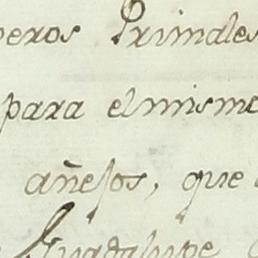 peros Primales
para el mismo
añejos, que
Guadalupe